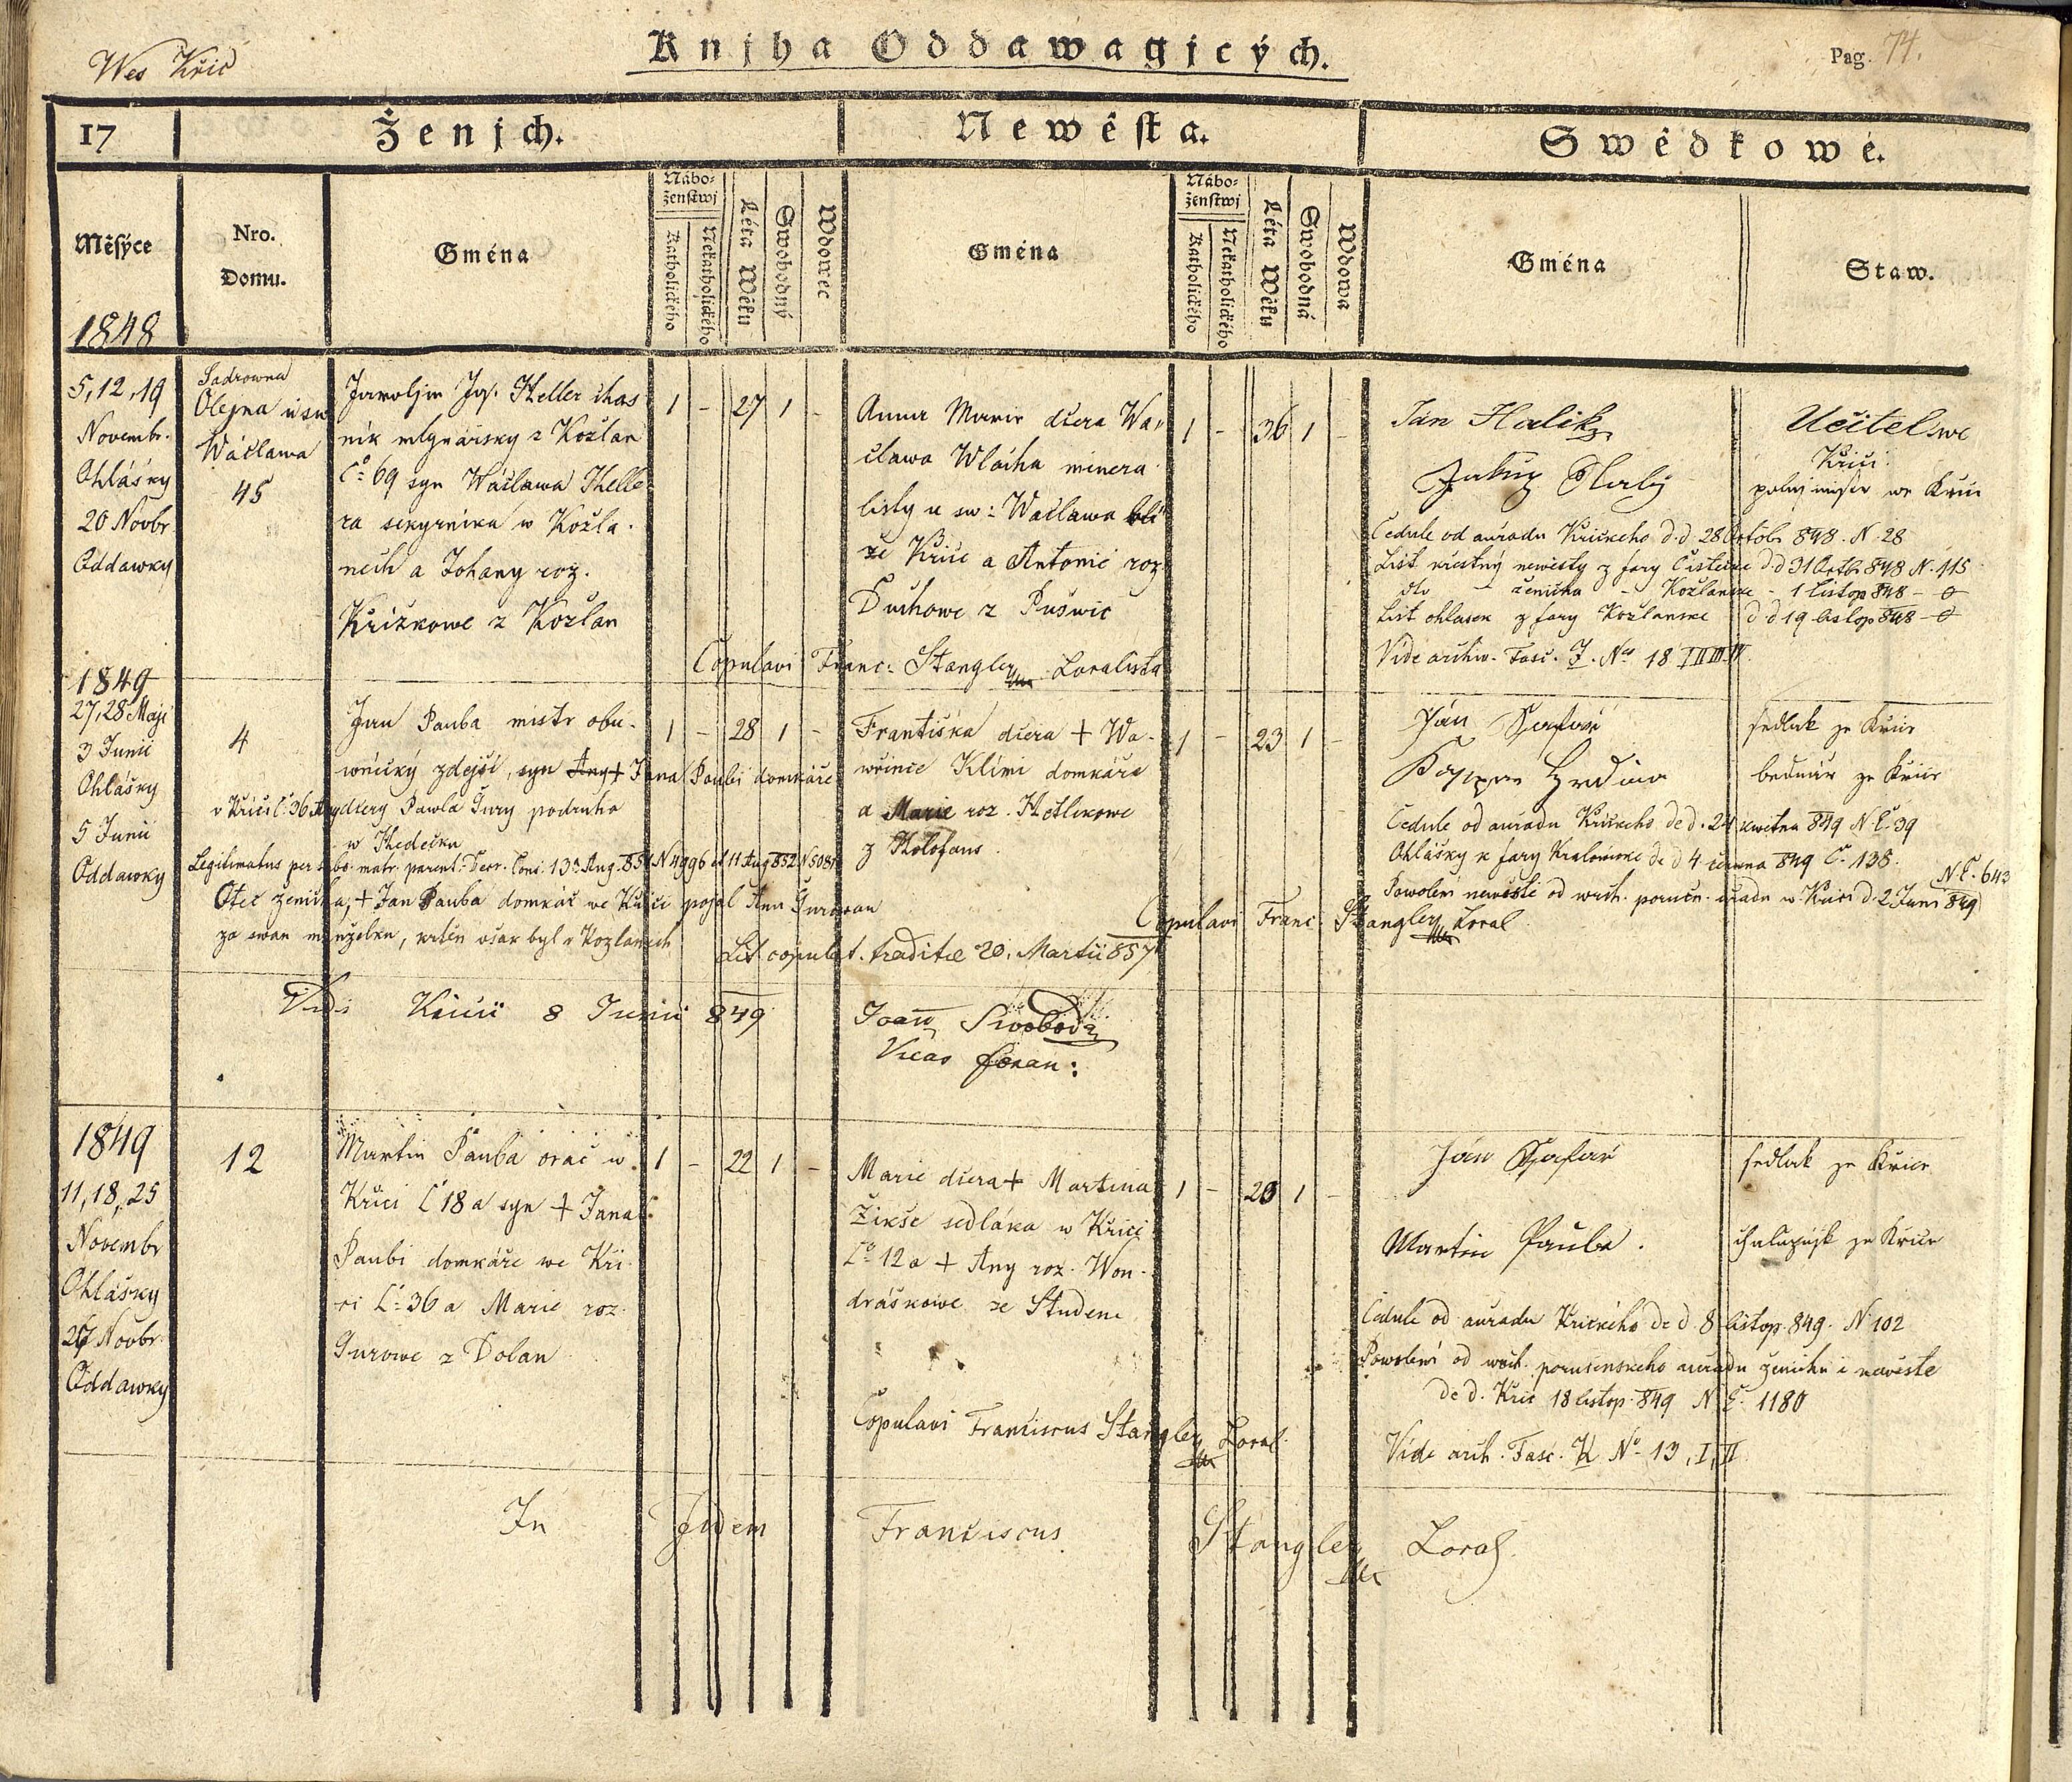 Wes Křic
Knjha Oddawagjcých.
Pag. 74.
17
Ženjch.
Newěsta.
Swědkowé.
Měsýce
1848
Nro.
Domu.
Gména
Nábo-
ženstwj
Katholického
Nekatholického
Léta Wěku
Swobodný
Wdowec
Gména
Nábo-
ženstwj
Katholického
Nekatholického
Léta Wěku
Swobodná
Wdowa
Gména
Staw.
5, 12, 19
Novembr.
Ohlášky
20 Novbr
Oddawky
Olejna u sw
Wáclawa
45
Jaroljm Jos. Heller
nik mlynářsky z Kožlan
Č. 69 syn Wáclawa Helle-
ra sekyrnika w Kožla-
nech a Johany roz.
Křižkowe z Kožlan
1 - 27 1 -
Anna Marie dcera Wa-
clawa Wlacha minera
listy u sw: Waclawa bli
že Křice a Antonie roz.
Duchowe z Pušwic
1 - 36 1 -
Jan Halik
Učitel we
Křici.
Cedule od auradu Křickeho d.d 28 Octobr 848. N. 28
List křestný newěsty z fary Čistecke d.d 31 Octbr 848 N. 115
dto - ženicha - Kožlanske - 1 listop 848 -
List ohlasek z fary Kožlanske d.d 19 listop 848 -
Vide archiv. Fasc. J. No 18 I II III IV
Copulavi Franc: Stangler Localista
1849
27, 28 Maji
3 Junii
Ohlášky
5 Junii
Oddawky
4
Jan Pauba mistr obu-
wnický zdejší, syn Any + Jana Paubi domkáře
w Křici č. 36 Any dcery Pawla Gury podruha
w Hedečku
1 - 28 1 -
Františka dcera + Wa-
wřince Klimi domkáře
a Marie roz. Hetlikowe
z Holofaus
1 - 23 1 -
Ján Šafař
sedlak ze Křice
bednár ze Křice
Cedule od auradu Křickeho de d. 24 kwětna 849 N. Č. 39
Ohlášky z fary Kralowicke de d 4 června 849 Č. 138.
Powoleni newěstě od wrch. poručn. auradu w Křici d. 2 Juni 849
N. Č. 643
Legitimatus per subs. matr. parent. Decr. Cons. 13 Aug. 851 N 4996 et 11 Aug 852 N 5081
Otec ženicha, + Jan Pauba domkář we Křici pojal Ann Gurowau
za swau manželku, křtěn však byl v Kozlanech
Copulavi Franc Stangler Local
Lit copulat. traditae 20. Martii 857
Vidi Křicii 8 Junii 849
Joann Swoboda
Vicar foran:
1849
11, 18, 25
Novembr
Ohlášky
26 Novbr
Oddawky
12
Martin Pauba oráč w
Křici č 18 a syn + Jana
Paubi domkáře we Kři-
ci Č. 36 a Marie roz.
Gurowe z Dolan
1 - 22 1 -
Marie dcera + Martina
Žikše sedláka w Křici
Č. 12 a + Any roz. Won-
dráškowe ze Studene
1 - 20 1 -
Ján Šafař
sedlak ze Křice
Martin Pauba.
chalupnjk ze Křice
Cedule od auradu Křickeho de d. 8 listop. 849. N 102
Powoleni od wrch. porucenskeho auradu ženichu i newěstě
de d. Křic 18 listop. 849 N. Č. 1180
Vide arch. Fasc. K No 13, I, II
Copulavi Franciscus Stangler Local.
In fidem Franciscus Stangler Local.